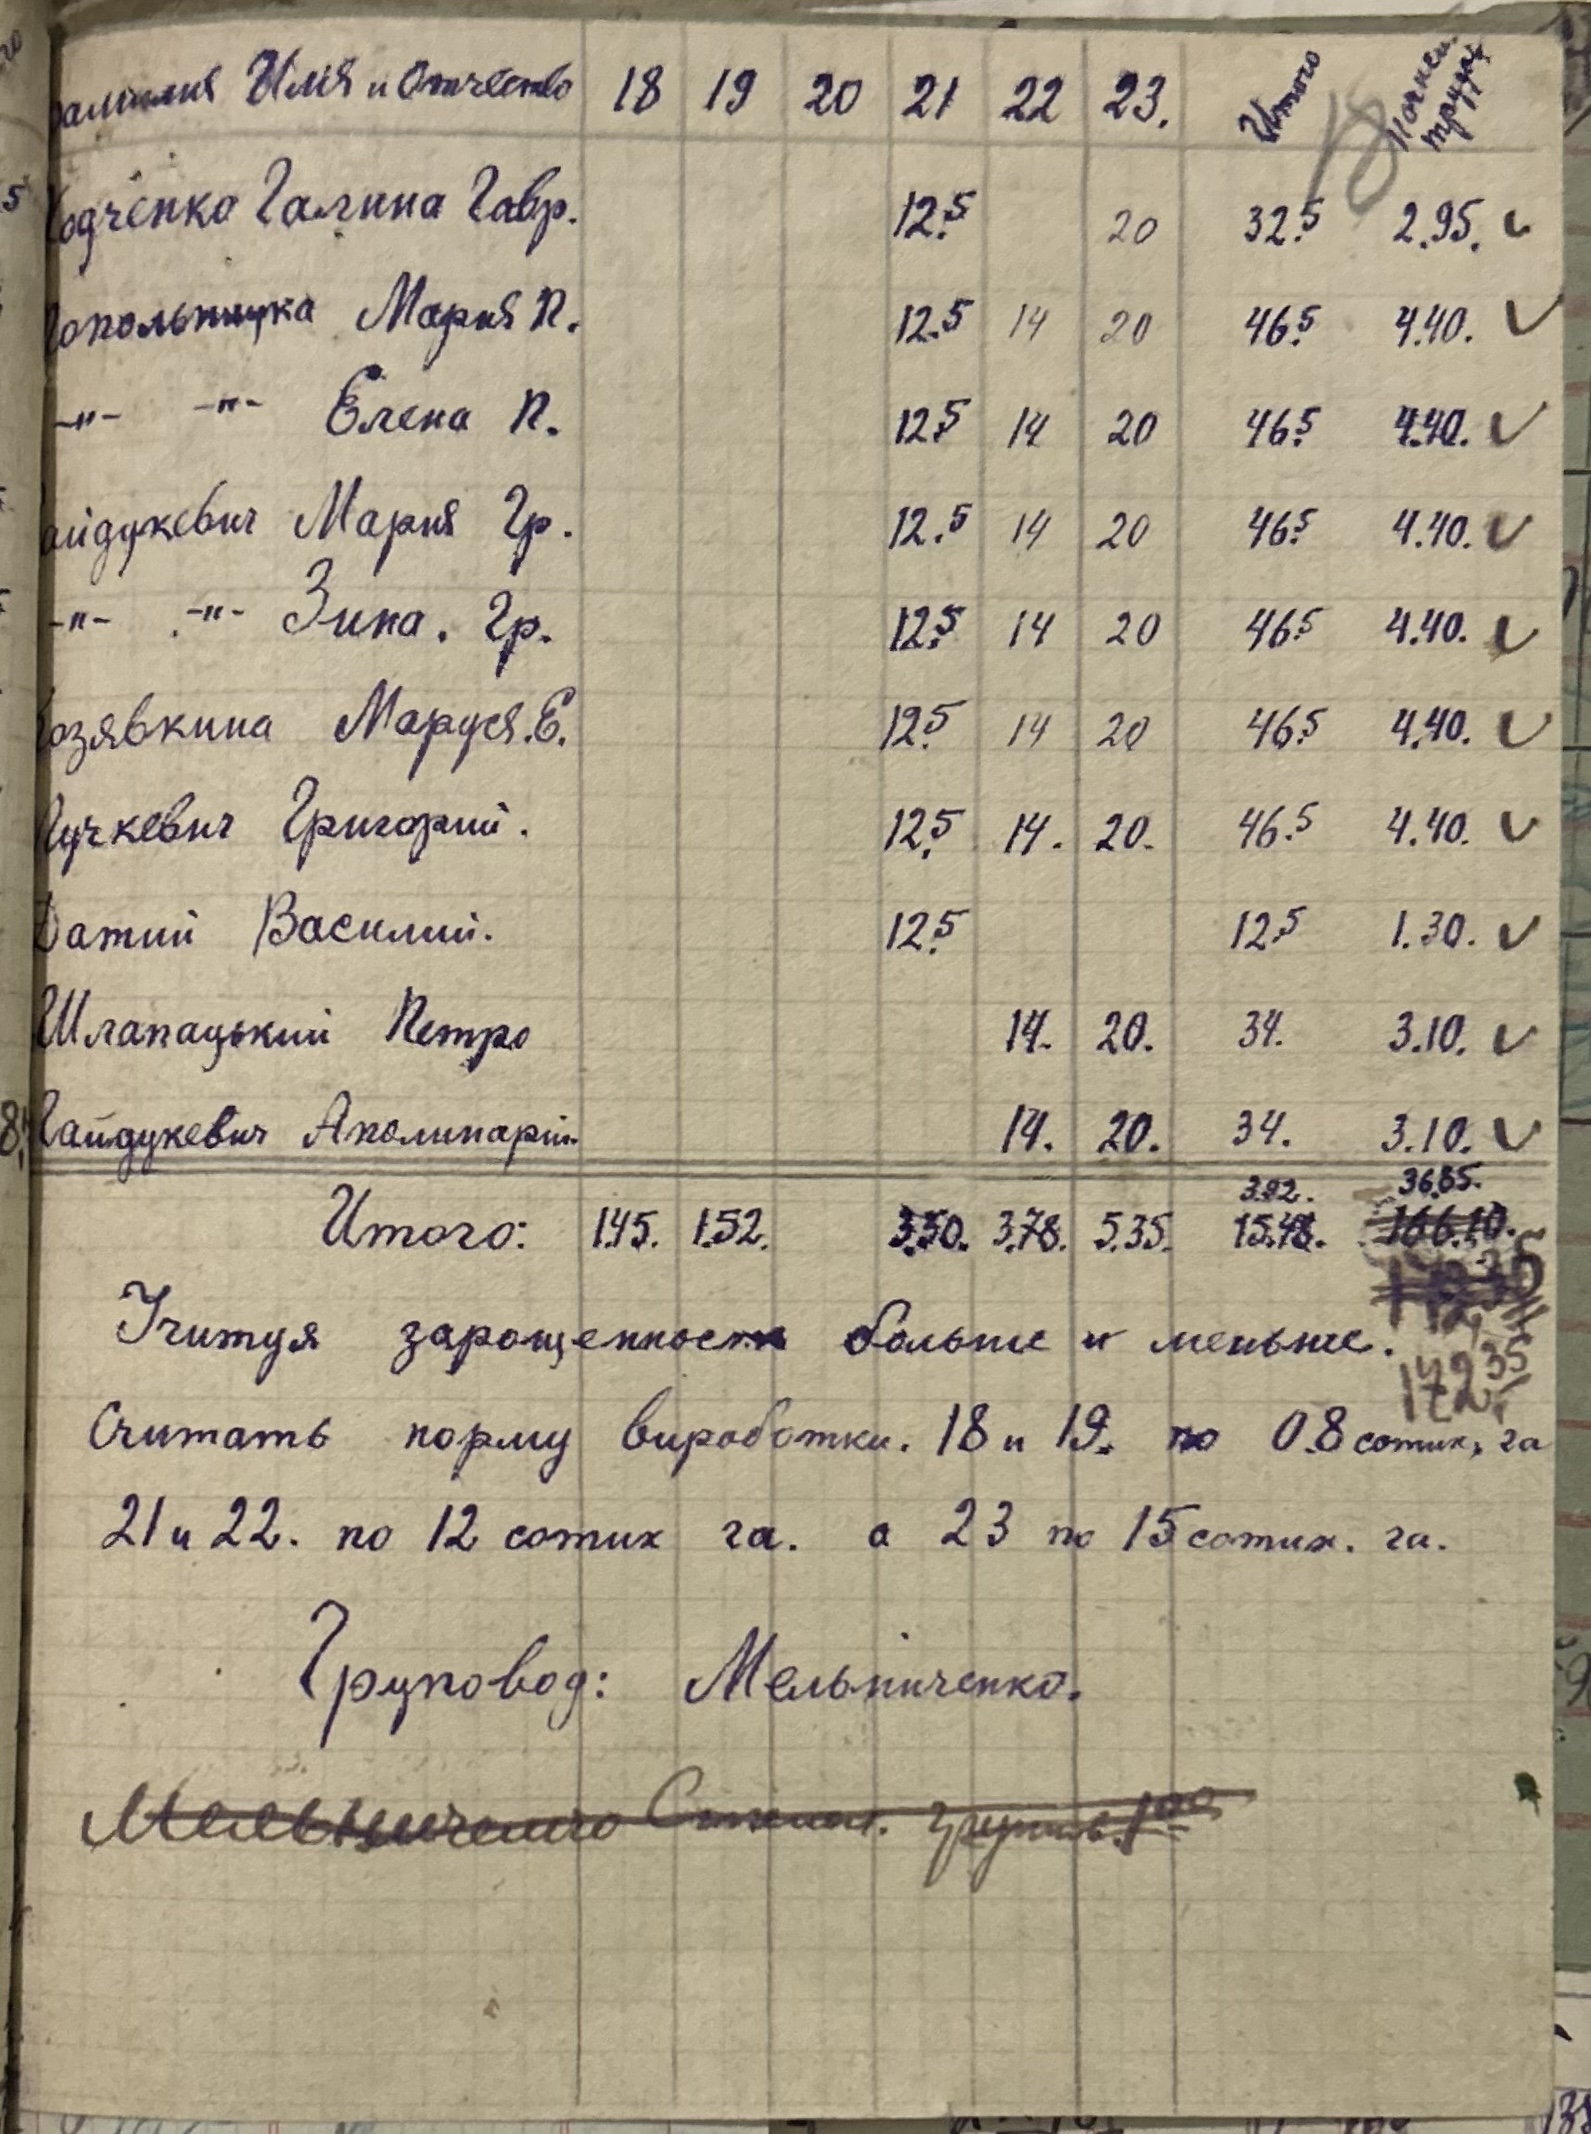 фамилия Имя и Отчество 18 19 20 21 22 23. Итого
Галина Гавр. 12.5 20 32.5 2.95.
Мария П. 12.5 14 20 46.5 4.40.
-"- -"- Елена П. 12.5 14 20 46.5 4.40.
айдукевич Мария Гр. 12.5 14 20 46.5 4.40.
-"- -"- Зина. Гр. 12.5 14 20 46.5 4.40.
озявкина Маруся.Е. 12.5 14 20 46.5 4.40.
Григорий. 12.5 14. 20. 46.5 4.40.
Василий. 12.5 12.5 1.30.
Шлапацький Петро 14. 20. 34. 3.10.
Гайдукевич Аполинарій. 14. 20. 34. 3.10.
3.92. 36.85.
Итого: 1.45. 1.52. 3.50. 3.78. 5.35. 15.48. 166.10.
Учитуя зарощеность больше и меньше.
172.35
Считать норму виработки. 18 и 19. по 0.8 сотих, га
21 и 22. по 12 сотих га. а 23 по 15 сотих. га.
Груповод: Мельниченко.
Мельниченко